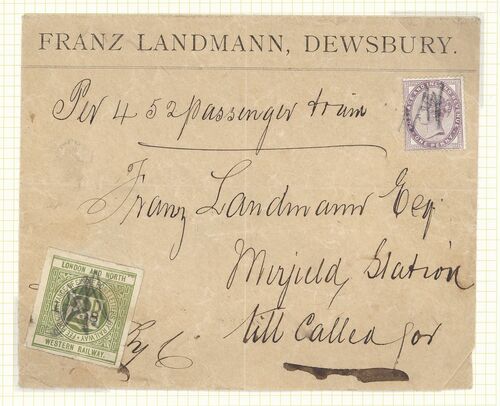 FRANZ LANDMANN, DEWSBURY.
Per 4 52 passenger train
Franz Landmann Esq
Mirfield Station
till Called for
LONDON AND NORTH
WESTERN RAILWAY.